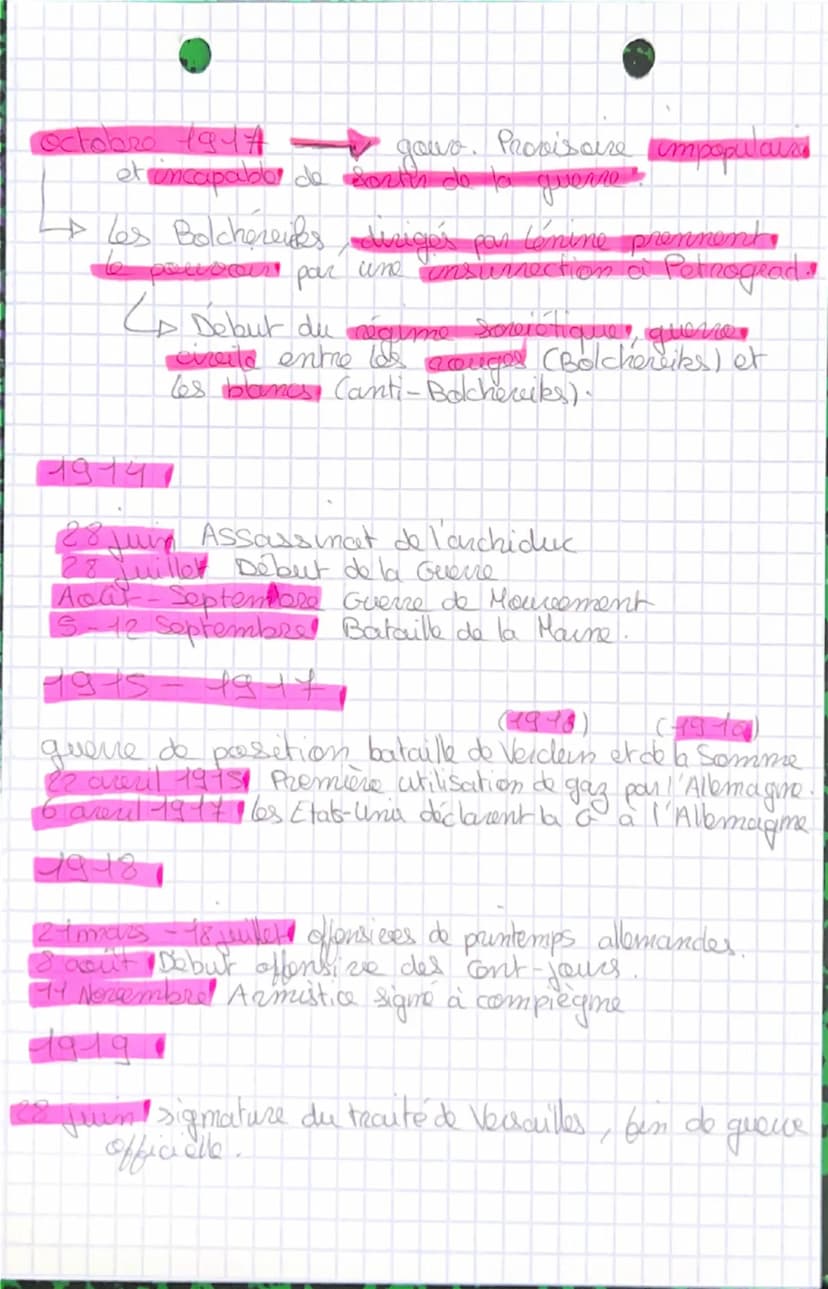 octobre 1917 → gouv. Provisoire impopulaire
et incapable de sortir de la guerre.
↳ Les Bolcheviks, dirigés par Lénine prennent
le pouvoir par une insurrection à Petrograd.
↳ Début du régime soviétique, guerre
civile entre les rouges (Bolcheviks) et
les blancs (anti-Bolcheviks).
1914
28 juin Assassinat de l'archiduc
28 Juillet Début de la Guerre
Août - Septembre Guerre de Mouvement
5-12 Septembre Bataille de la Marne.
1915 - 1917
(1916) (1916)
guerre de position bataille de Verdun et de la Somme
22 avril 1915 Première utilisation de gaz par l'Allemagne.
6 avril 1917 les Etats-Unis déclarent la G à l'Allemagne
1918
21 mars - 18 juillet offensives de printemps allemandes.
8 août Début offensive des Cent-jours.
11 Novembre Armistice signé à compiègne
1919
28 juin signature du traité de Versailles, fin de guerre
officielle.